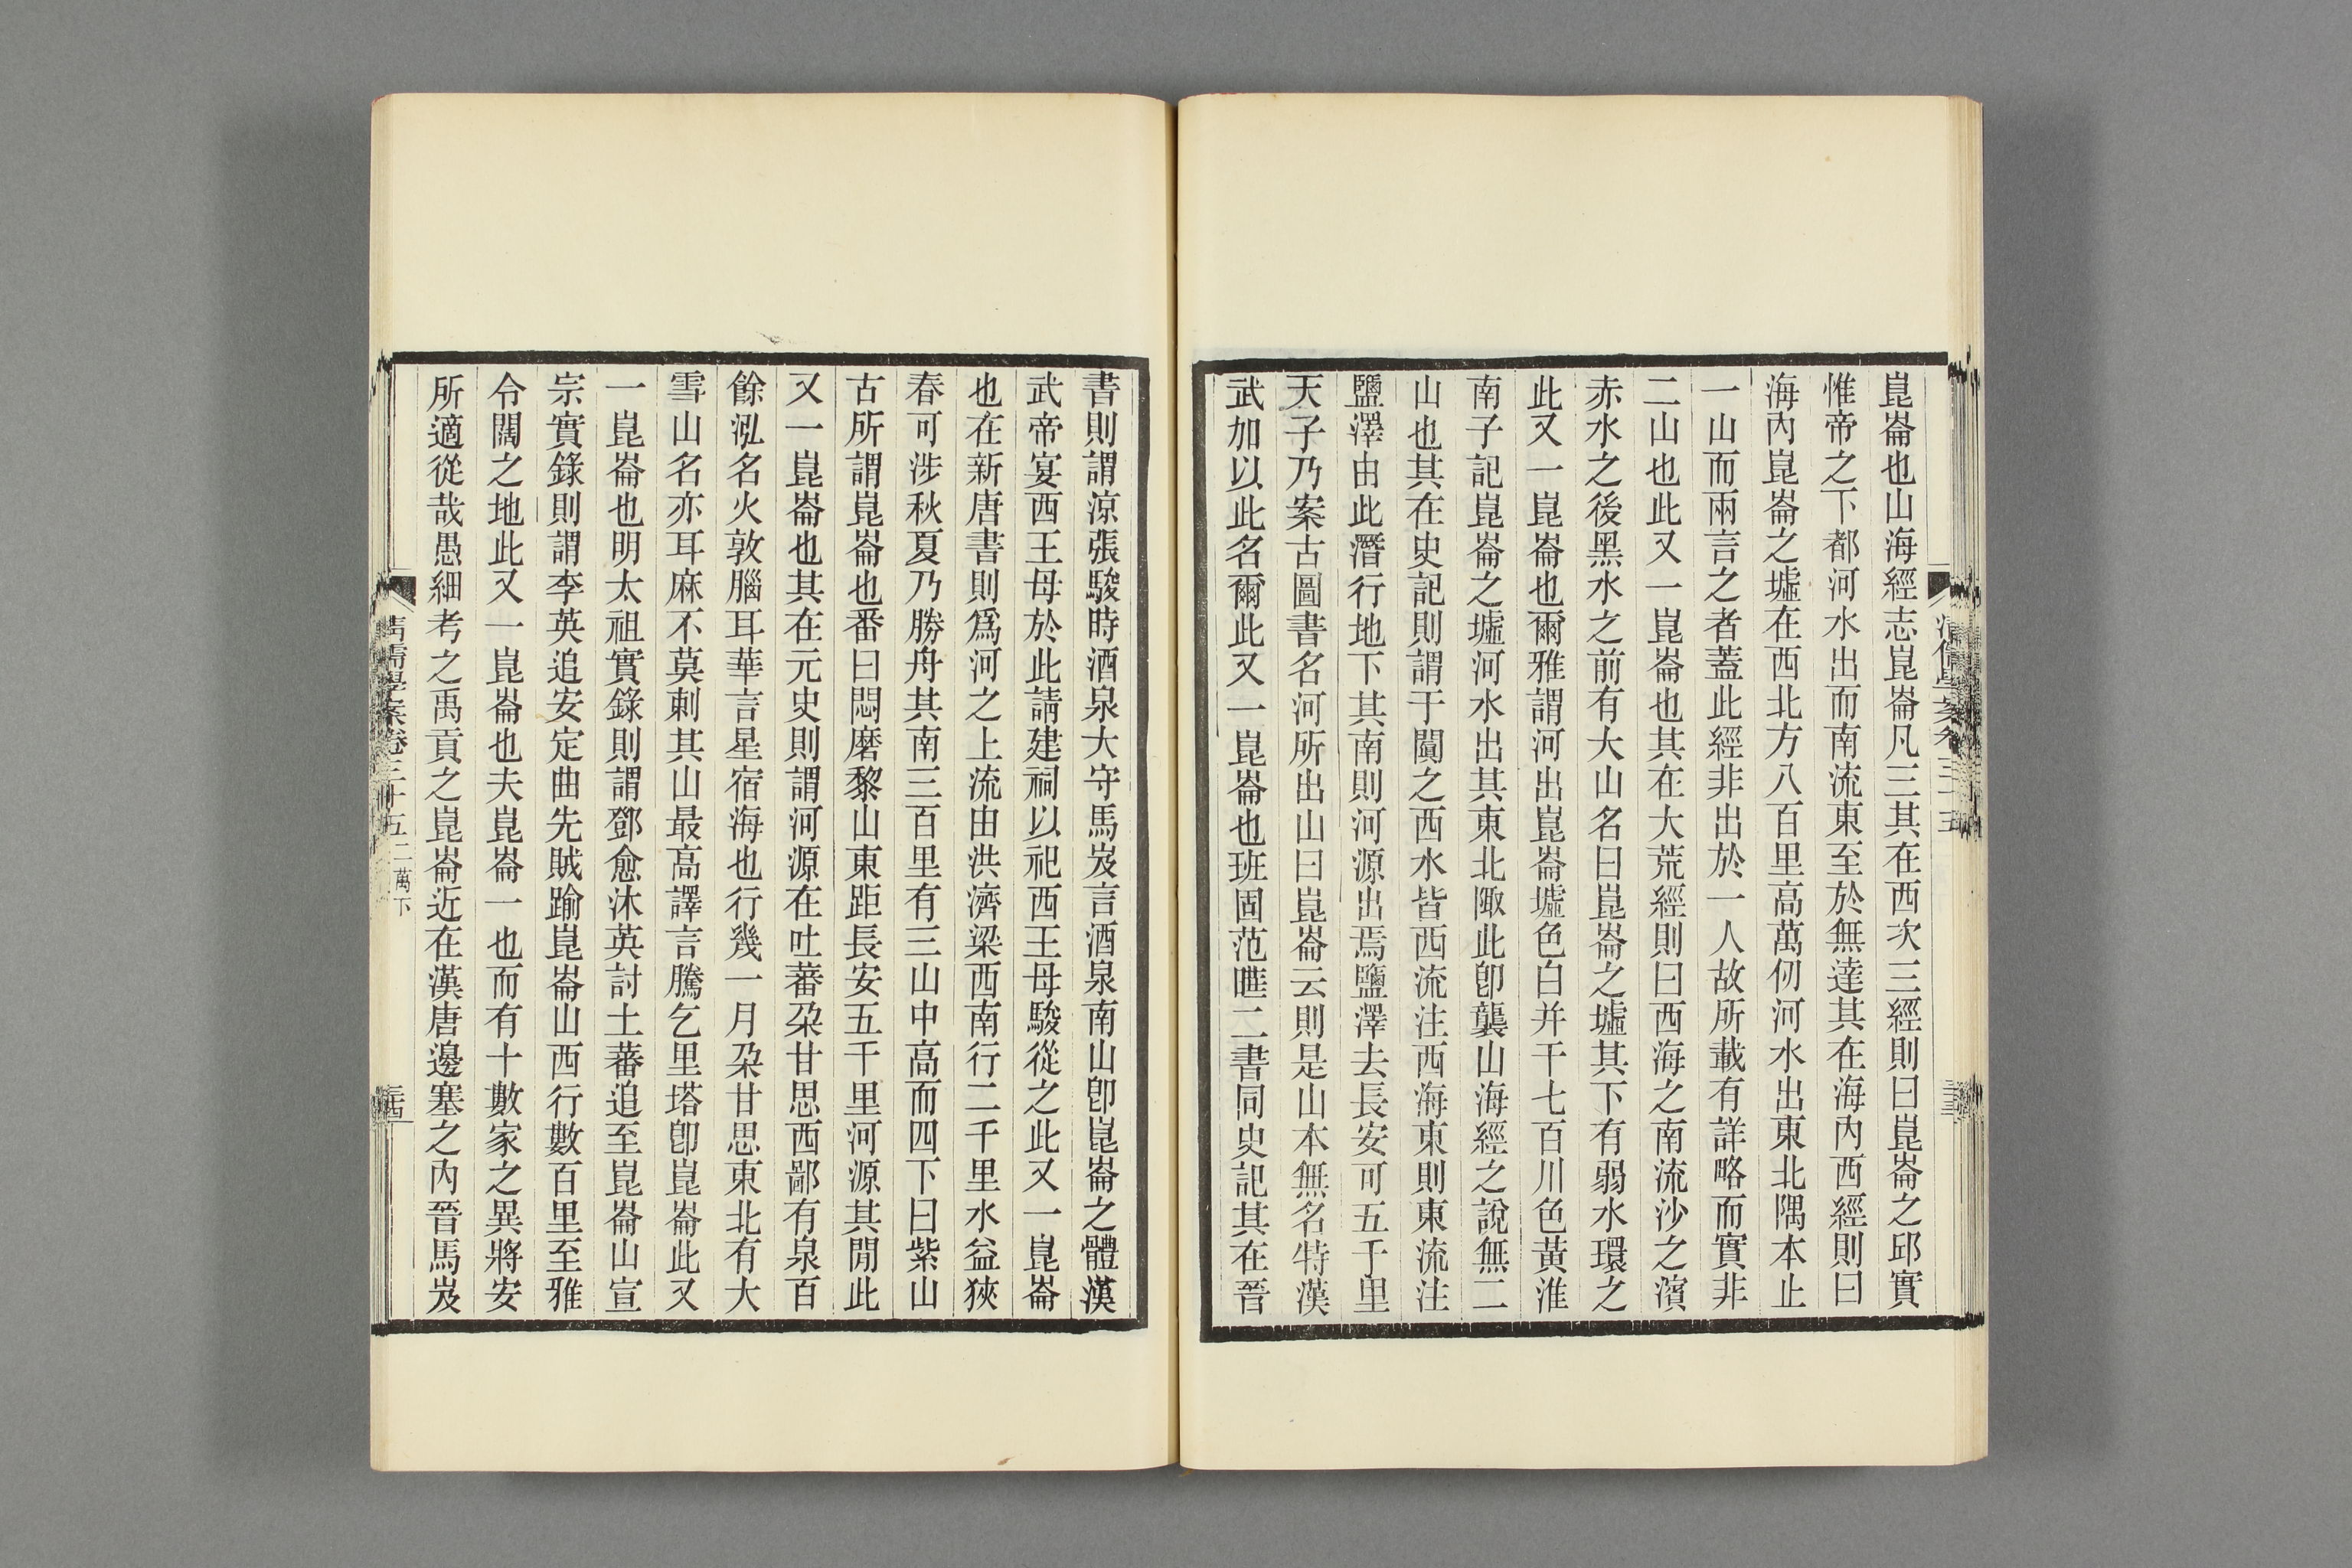 崑崙也山海經志崑崙凡三其在西次三經則曰崑崙之邱實
惟帝之下都河水出而南流東至於無達其在海內西經則曰
海內崑崙之墟在西北方八百里高萬仞河水出東北隅本止
一山而兩言之者蓋此經非出於一人故所載有詳略而實非
二山也此又一崑崙也其在大荒經則曰西海之南流沙之濱
赤水之後黑水之前有大山名曰崑崙之墟其下有弱水環之
此又一崑崙也爾雅謂河出崑崙墟色白并千七百川色黃淮
南子記崑崙之墟河水出其東北陬此卽襲山海經之說無二
山也其在史記則謂于闐之西水皆西流注西海東則東流注
鹽澤由此潛行地下其南則河源出焉鹽澤去長安可五千里
天子乃案古圖書名河所出山曰崑崙云則是山本無名特漢
武加以此名爾此又一崑崙也班固范曄二書同史記其在晉
書則謂涼張駿時酒泉大守馬岌言酒泉南山卽崑崙之體漢
武帝宴西王母於此請建祠以祀西王母駿從之此又一崑崙
也在新唐書則爲河之上流由洪濟梁西南行二千里水益狹
春可涉秋夏乃勝舟其南三百里有三山中高而四下曰紫山
古所謂崑崙也番曰悶磨黎山東距長安五千里河源其閒此
又一崑崙也其在元史則謂河源在吐蕃朶甘思西鄙有泉百
餘泓名火敦腦耳華言星宿海也行幾一月朶甘思東北有大
雪山名亦耳麻不莫剌其山最高譯言騰乞里塔卽崑崙此又
一崑崙也明太祖實錄則謂鄧愈沐英討土蕃追至崑崙山宣
宗實錄則謂李英追安定曲先賊踰崑崙山西行數百里至雅
令闊之地此又一崑崙也夫崑崙一也而有十數家之異將安
所適從哉愚細考之禹貢之崑崙近在漢唐邊塞之內晉馬岌
清儒學案卷三十五 二萬下